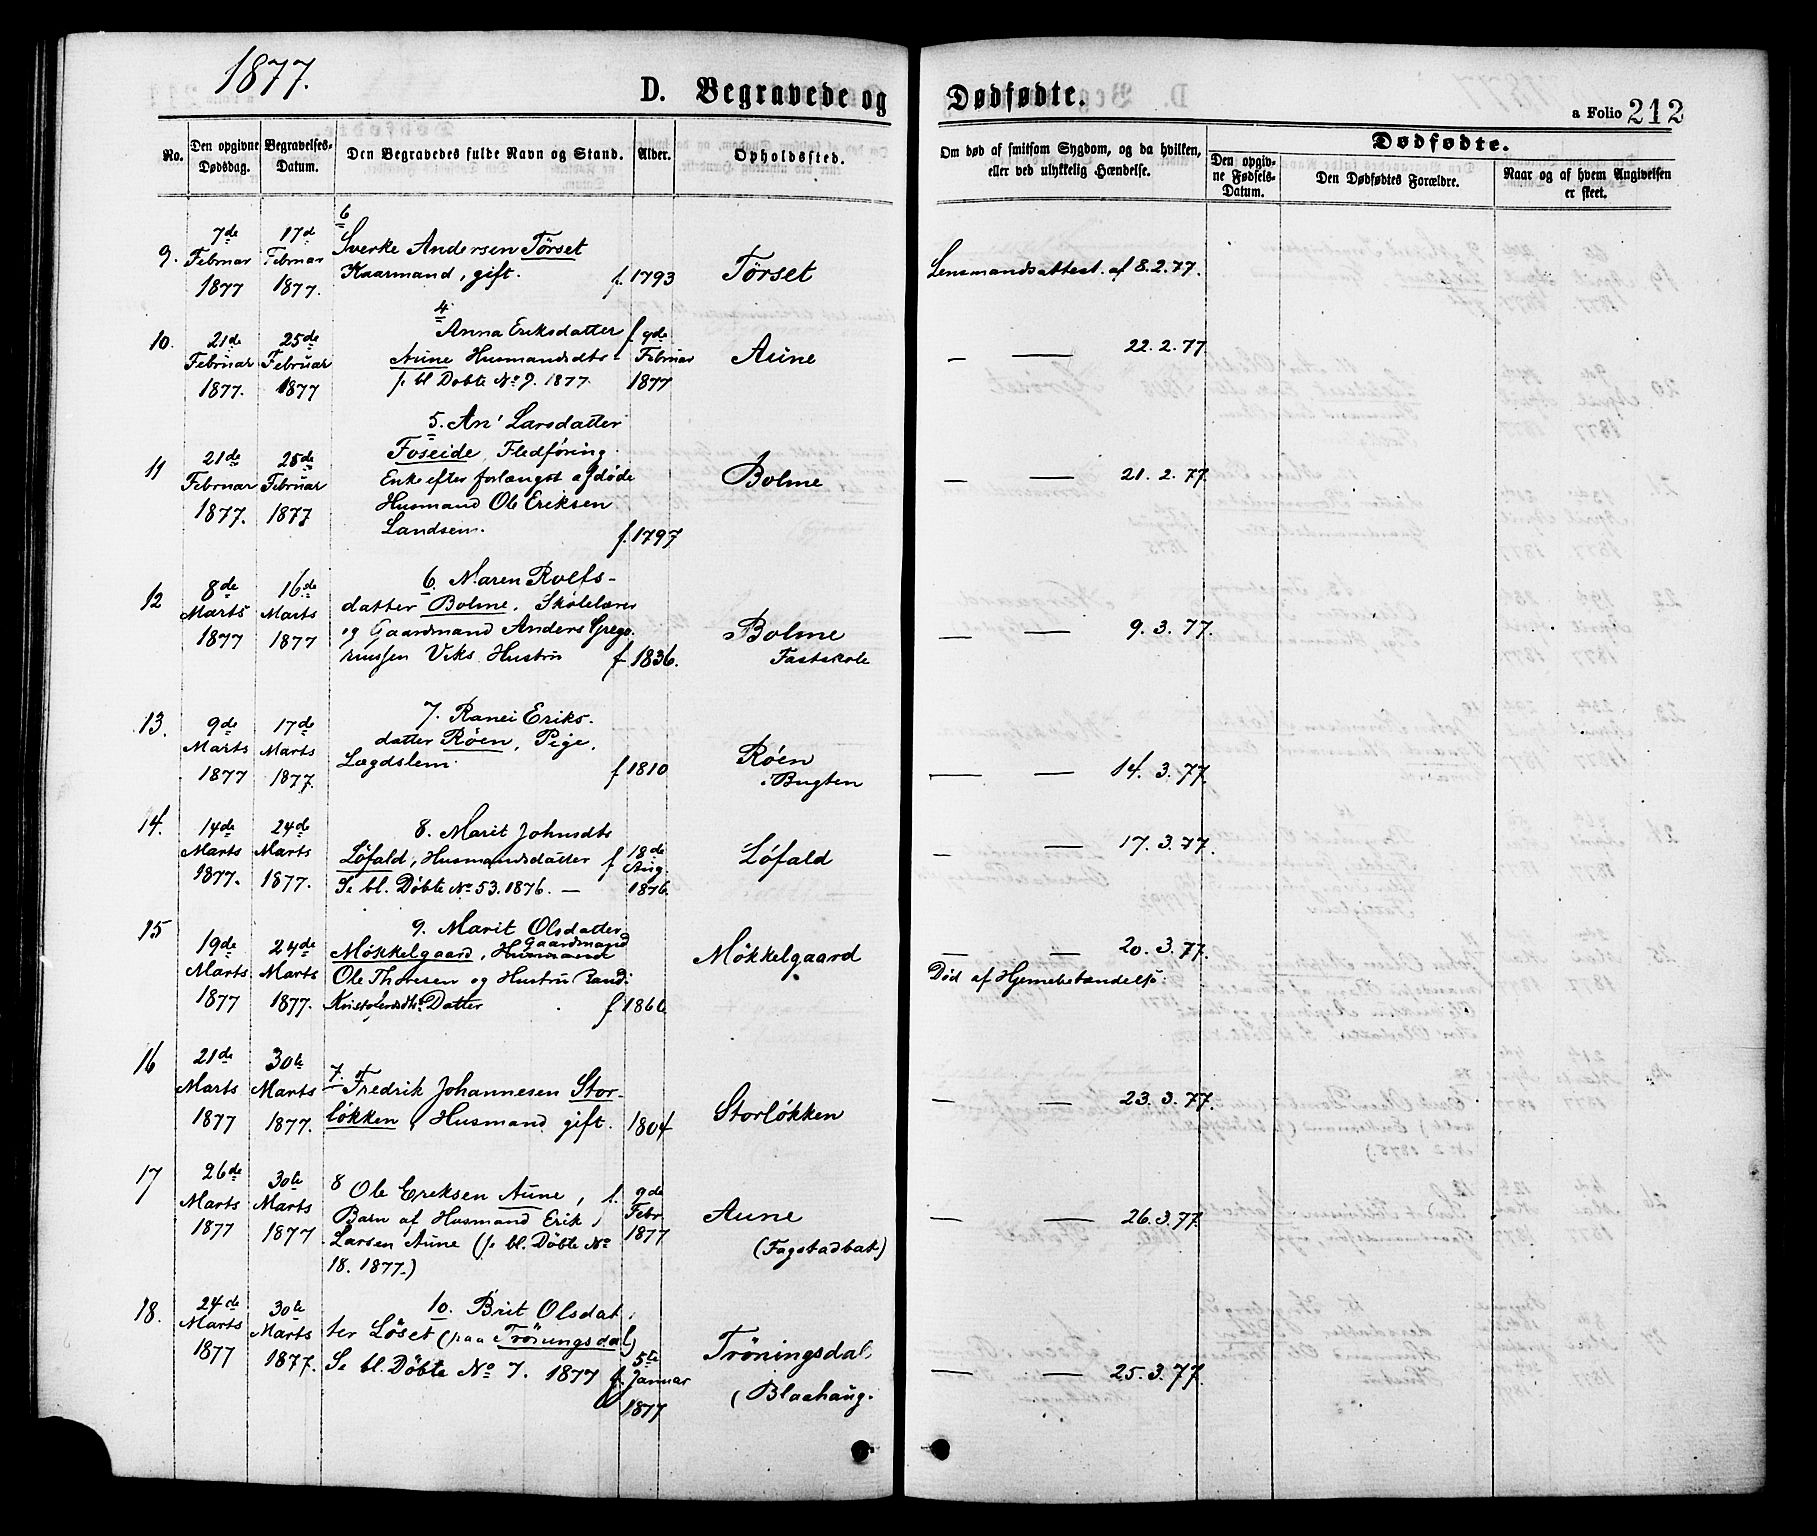 1877.
D. Begravede og Dødfødte.
a Folio 212
No.
Den opgivne Dødsdag.
Begravelses-Datum.
Den Begravedes fulde Navn og Stand.
Alder.
Opholdssted.
Om død af smitsom Sygdom, og da hvilken, eller ved ulykkelig Hændelse.
Dødfødte.
Den opgivne Fødsels-Datum.
Den Dødfødtes Forældre.
Naar og af hvem Angivelsen er skeet.
9.
7de Februar 1877
17d Februar 1877.
6
Sverke Andersen Tørset
Kaarmand, gift.
f. 1793
Tørset
Lensmandsattest. af 8.2.77.
10.
21de Februar 1877.
25de Februar 1877
4
Anna Eriksdatter
Aune Husmandsdts
s. bl Døbte No 9. 1877.
f 9de Februar 1877
Aune
— — 22.2.77.
11
21de Februar 1877.
25de Februar 1877
5. An' Larsdatter
Foseide, Fledføring.
Enke efter forlængst afdøde
Husmand Ole Eriksen
Landsem.
f. 1797
Bolme
— — 21.2.77.
12
8de Marts 1877
16de Marts 1877
6. Maren Rolfs-
datter Bolme. Skolelærer
og Gaardmand Anders Grego-
riussen Viks Hustru
f. 1836.
Bolme
Fastskole
— — 9.3.77.
13.
9de Marts 1877
17de Marts 1877.
7. Ranei Eriks-
datter Røen, Pige.
Lægdslem.
f 1810
Røen
i Bugten
— — 14.3.77.
14.
14de Marts 1877.
24de Marts 1877.
8. Marit Johnsdts
Løfald, Husmandsdatter
Se bl. Døbte No. 53. 1876. —
f 18de Aug. 1876.
Løfald
— — 17.3.77.
15
19de Marts 1877
24de Marts 1877.
9. Marit Olsdatter
Gaardmand
Møkkelgaard, Husmand
Ole Thoresen og Hustru Randi
Kristofersdts Datter
f 1860
Møkkelgaard
— — 20.3.77.
Død af Hjernebetændelse.
16
21de Marts 1877
30te Marts 1877.
7. Fredrik Johannesen Stor-
løkken, Husmand gift.
1804
Storløkken
— — 23.3.77.
17
26de Marts 1877
30te Marts 1877
8 Ole Eriksen Aune,
Barn af Husmand Erik
Larsen Aune (s. bl. Døbte No
18. 1877.)
f. 9de Febr 1877
Aune
(Fagstadbak)
— — 26.3.77.
18.
24de Marts 1877
30te Marts 1877.
10. Brit Olsdat-
ter Løset (paa Trøningsdal)
Se bl. Døbte No 7. 1877
f. 5te Januar 1877
Trøningsdal,
(Blaahaug.
— — 25.3.77.